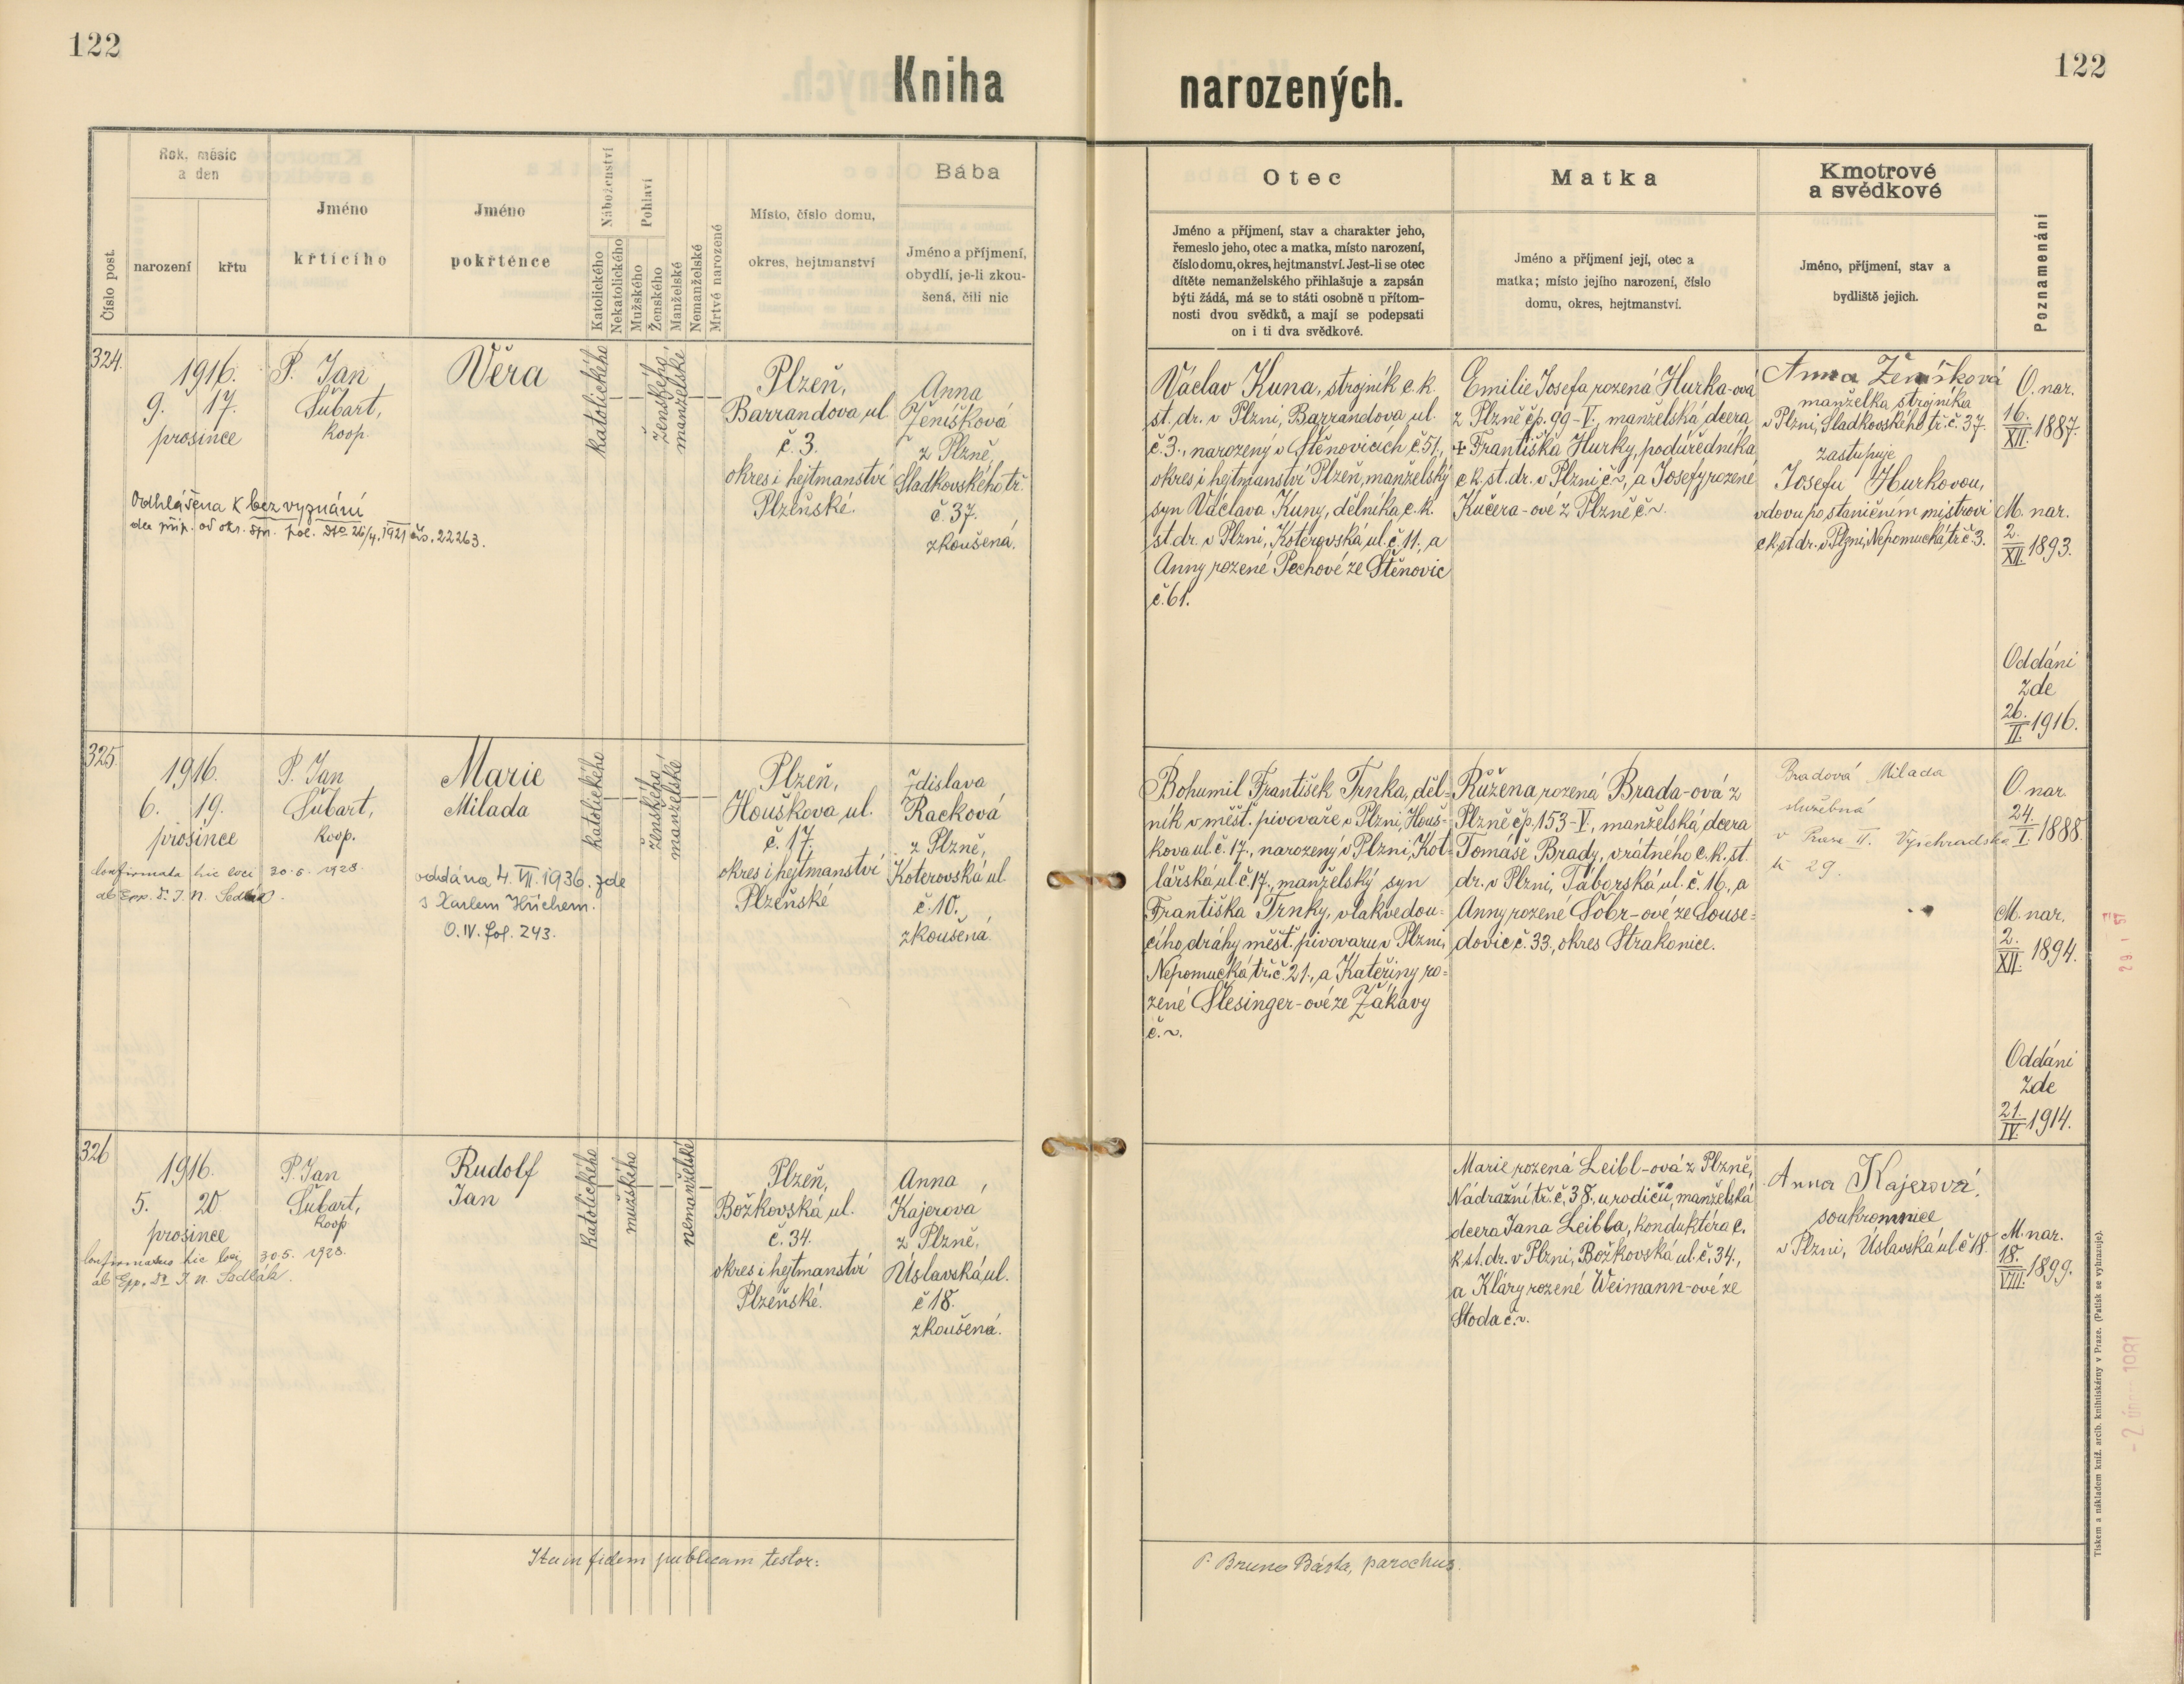 122
122
Kniha
narozených.
Číslo post.
Rok, měsíc
a den
narození
křtu
Jméno
křtícího
Jméno
pokřtěnce
Náboženství
Katolického
Nekatolického
Pohlaví
Mužského
Ženského
Manželské
Nemanželské
Mrtvě narozené
Místo, číslo domu,
okres, hejtmanství
Bába
Jméno a příjmení,
obydlí, je-li zkou-
šená, čili nic
Otec
Jméno a příjmení, stav a charakter jeho,
řemeslo jeho, otec a matka, místo narození,
číslo domu, okres, hejtmanství. Jest-li se otec
dítěte nemanželského přihlašuje a zapsán
býti žádá, má se to státi osobně u přítom-
nosti dvou svědků, a mají se podepsati
on i ti dva svědkové.
Matka
Jméno a příjmení její, otec a
matka; místo jejího narození, číslo
domu, okres, hejtmanství.
Kmotrové
a svědkové
Jméno, příjmení, stav a
bydliště jejich.
Poznamenání
324.
1916.
9. 17.
prosince
P. Jan
Šubart,
koop.
Věra
Katolického
ženského
manželské
Plzeň,
Barrandova ul
č. 3.
okres i hejtmanství
Plzeňské.
Anna
Ženíšková
z Plzně,
Sladkovského tř.
č. 37.
zkoušená.
Odhlášena k bez vyznání
dle příp. od okr. spr. pol. dto 26/4. 1921 čís. 22263.
Václav Kuna, strojník c. k.
st. dr. v Plzni, Barrandova ul.
č. 3., narozený v Štěnovicích č. 51.,
okres i hejtmanství Plzeň, manželský
syn Václava Kuny, dělníka c. k.
st dr. v Plzni, Koterovská ul. č. 11., a
Anny rozené Pechové ze Štěnovic
č. 61.
Emilie Josefa rozená Hurka-ová
z Plzně čp. 99-V., manželská dcera
+ Františka Hurky, podúředníka
c k. st. dr. v Plzni č ~, a Josefy rozené
Kučera-ové z Plzně č ~.
Anna Ženíšková
manželka strojníka
v Plzni, Sladkovského tř. č. 37.
zastupuje
Josefu Hurkovou,
vdovu po staničním mistrovi
c k. st dr. v Plzni, Nepomucká tř č. 3.
O. nar.
16.
XII. 1887.
M. nar.
2.
XII. 1893.
Oddáni
zde
26.
II. 1916.
325.
1916.
6. 19.
prosince
P. Jan
Šubart,
koop.
Marie
Milada
Katolického
ženského
manželské
Plzeň,
Houškova ul.
č. 17.
okres i hejtmanství
Plzeňské
Zdislava
Racková
z Plzně,
Koterovská ul.
č. 10.
zkoušená.
Confirmata hic loci 30. 5. 1928.
ab Epp. Dr. J. N. Sedlák.
oddána 4. VII. 1936. zde
s Karlem Hüchem.
O. IV. fol. 243.
Bohumil František Trnka, děl=
ník v měšť. pivovaře v Plzni, Houš-
kova ul. č. 17., narozený v Plzni, Kot-
lářská ul. č. 17., manželský syn
Františka Trnky, vlakvedou=
cího dráhy měšť. pivovaru v Plzni,
Nepomucká tř. č. 21., a Kateřiny ro=
zené Šlesinger-ové ze Žákavy
č. ~.
Růžena rozená Brada-ová z
Plzně čp. 153-V., manželská dcera
Tomáše Brady, vrátného c. k. st.
dr. v Plzni, Táborská ul. č. 16., a
Anny rozené Šobr-ové ze Souse=
dovic č. 33., okres Strakonice.
Bradová Milada
služebná
v Praze II. Vyšehradská
tř. 29.
O. nar.
24.
I. 1888.
M. nar.
2.
XII. 1894.
Oddáni
zde
21.
IV. 1914.
326
1916.
5. 20
prosince
P. Jan
Šubart,
koop
Rudolf
Jan
Katolického
mužského
nemanželské
Plzeň,
Božkovská ul.
č. 34.
okres i hejtmanství
Plzeňské.
Anna
Kajerová
z Plzně,
Úslavská ul.
č 18.
zkoušená.
Confirmatus hic loci 30 5. 1928.
ab Epp. Dr J. N. Sedlák.
Marie rozená Leibl-ová z Plzně,
Nádražní tř. č. 38. u rodičů, manželská
dcera Jana Leibla, konduktéra c.
k. st. dr. v Plzni, Božkovská ul. č. 34.,
a Kláry rozené Weimann-ové ze
Stoda č. ~.
Anna Kajerová,
soukromnice
v Plzni, Úslavská ul. č 18.
M. nar.
18.
VIII. 1899.
Ita in fidem publicam testor:
P. Bruno Bárta, parochus.
Tiskem a nákladem kníž. arcib. knihtiskárny v Praze. (Patisk se vyhrazuje).